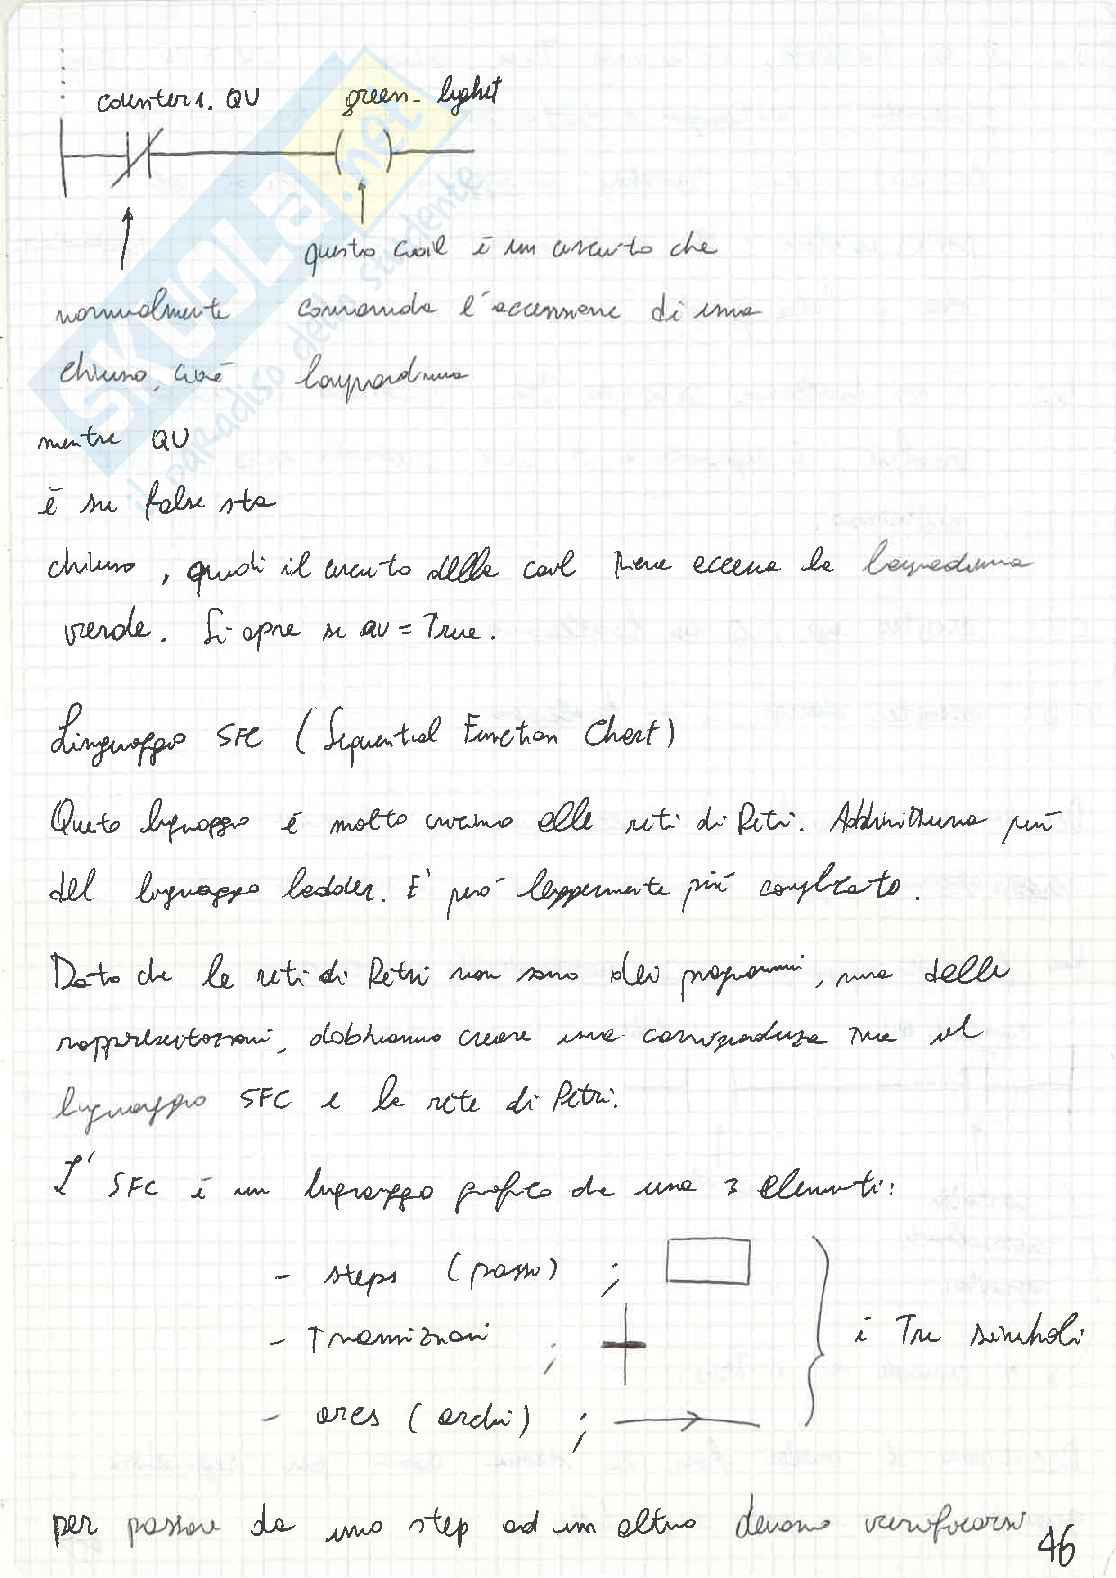 counter1. QU green_light
questo coil è un circuito che
normalmente comanda l'accensione di una
chiuso, cioè lampadina
mentre QU
è su false sta
chiuso, quindi il circuito della coil tiene accesa la lampadina
verde. Si apre se QU = True.
Linguaggio SFC (Sequential Function Chart)
Questo linguaggio è molto vicino alle reti di Petri. Addirittura più
del linguaggio ladder. E' però leggermente più complicato.
Dato che le reti di Petri non sono dei programmi, ma delle
rappresentazioni, dobbiamo creare una corrispondenza tra il
linguaggio SFC e la rete di Petri.
L' SFC è un linguaggio grafico da una 3 elementi:
- steps (passi) ;
- Transizioni ; i Tre simboli
- arcs (archi) ;
per passare da uno step ad un altro devono verificarsi
46
SKUOLA.net
il paradiso dello studente